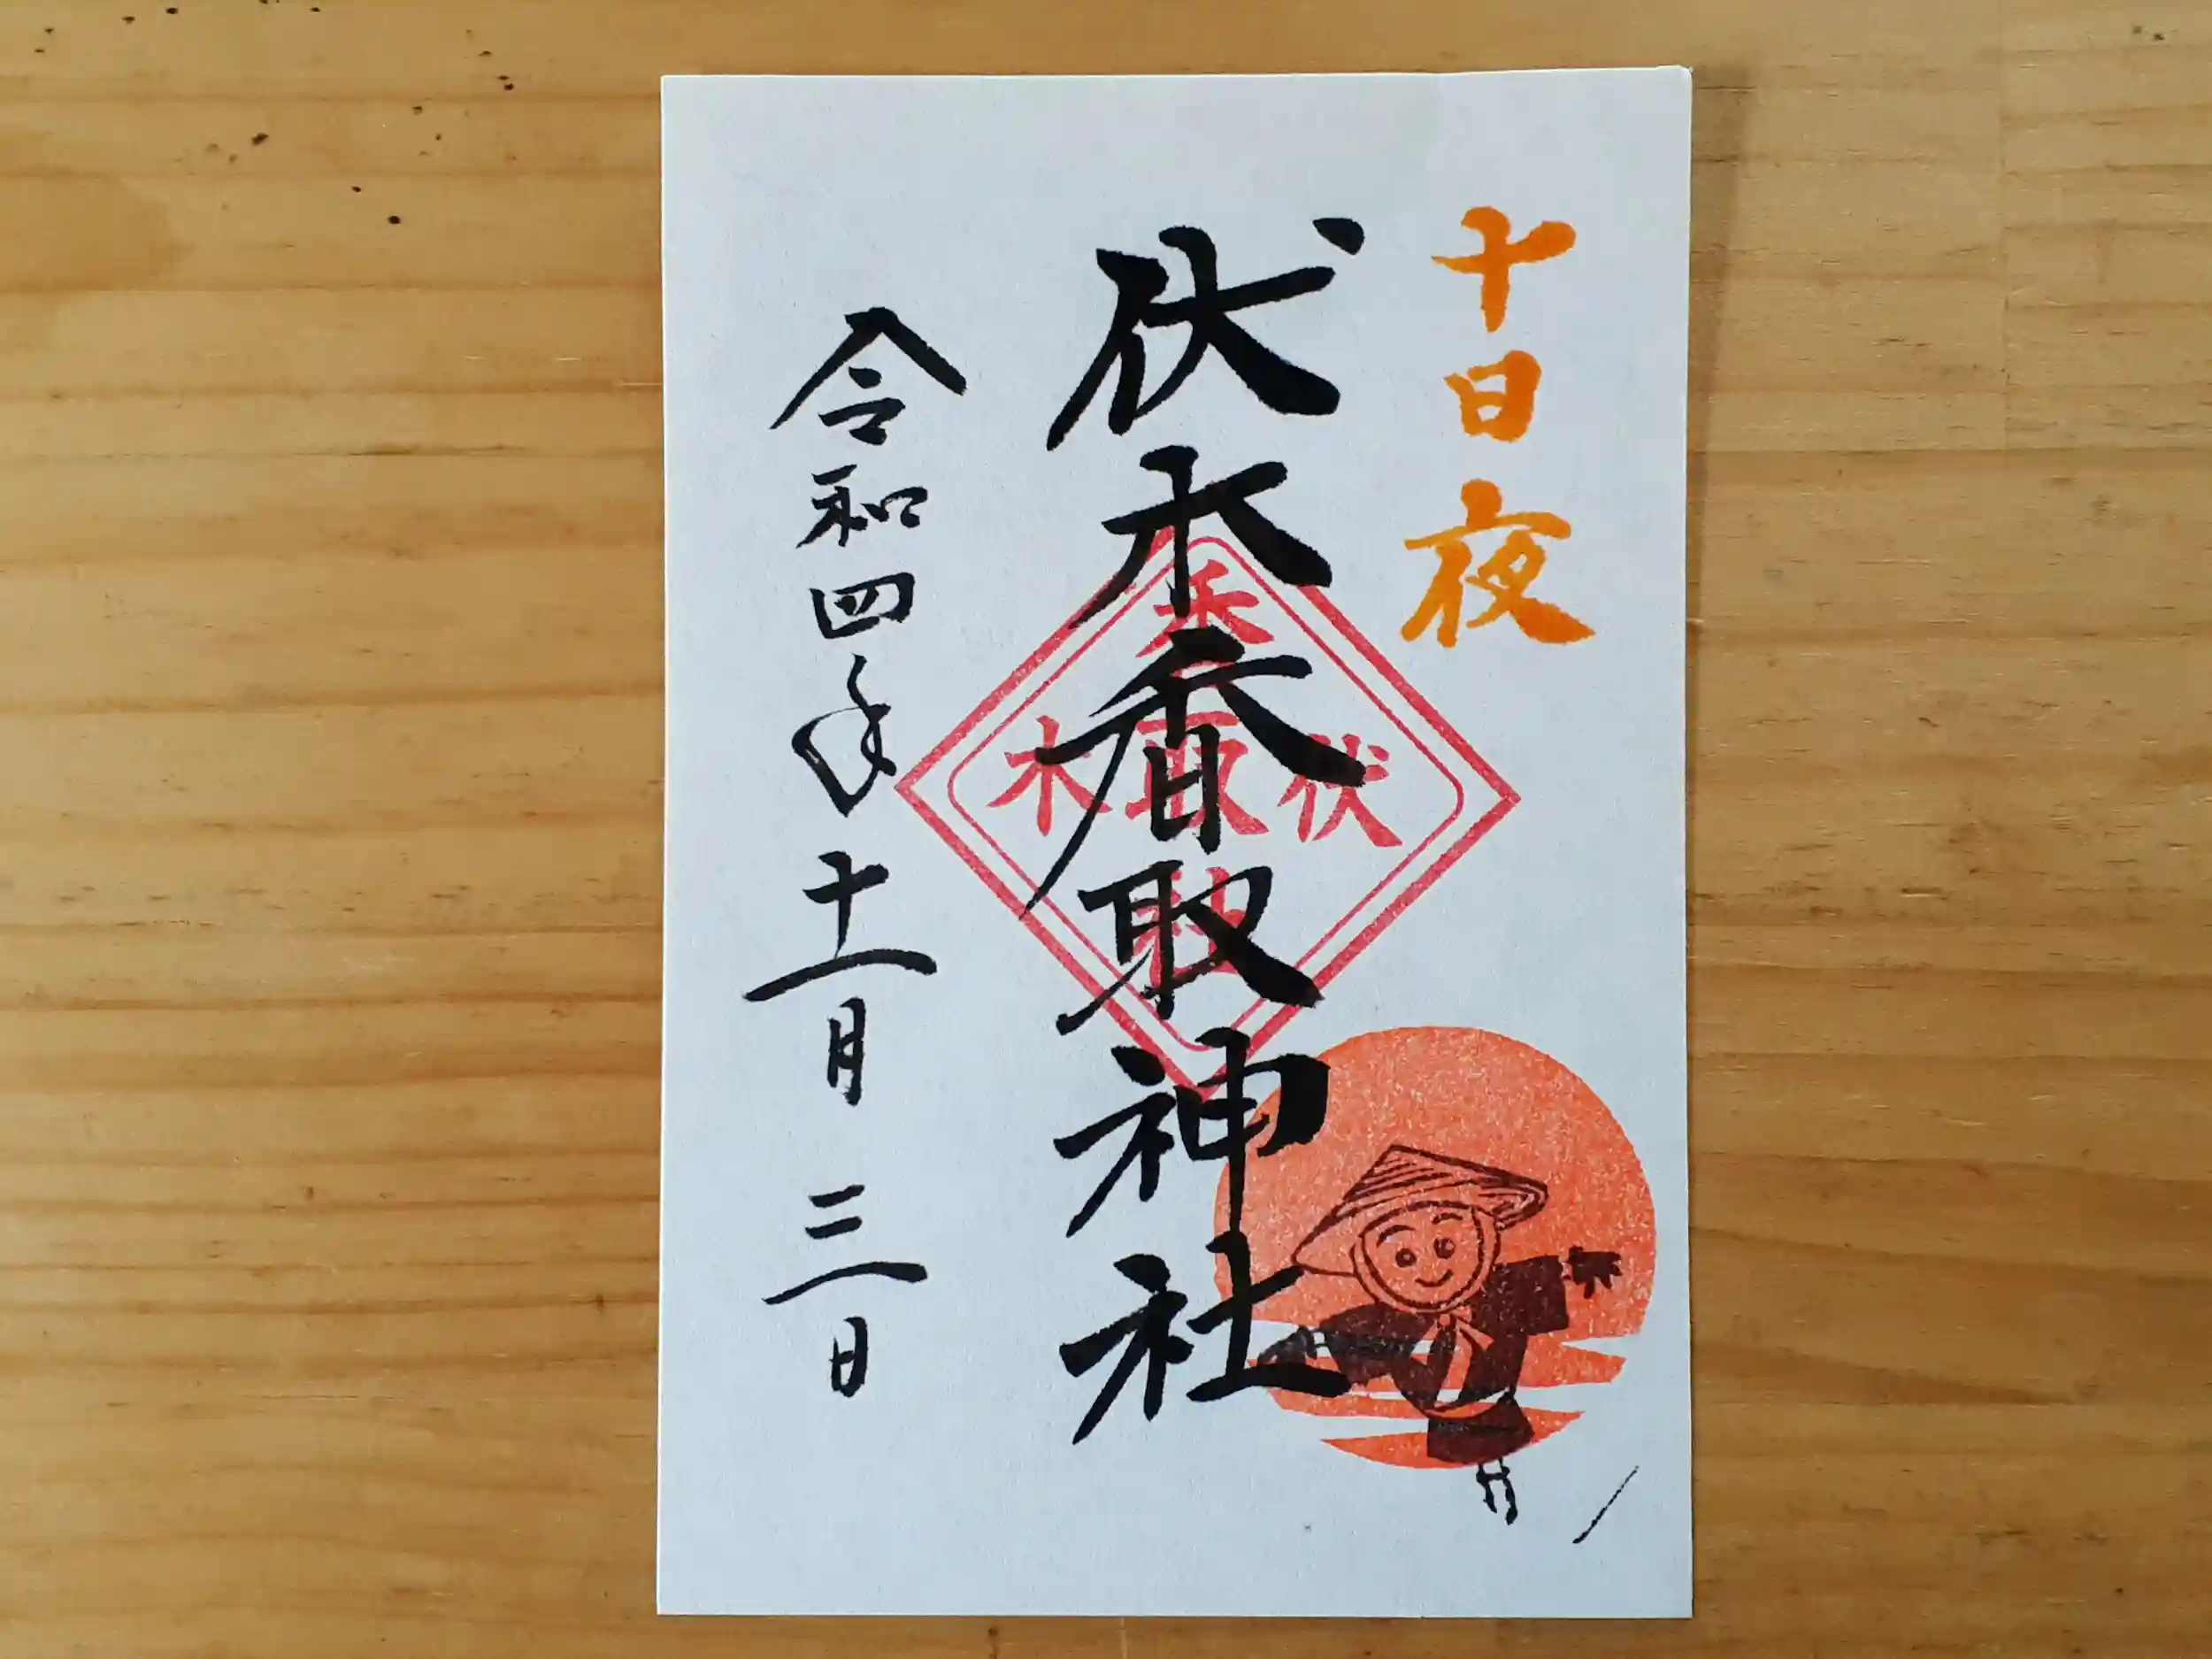 十日夜
伏木香取神社
伏木
香取
社
令和四年十一月三日